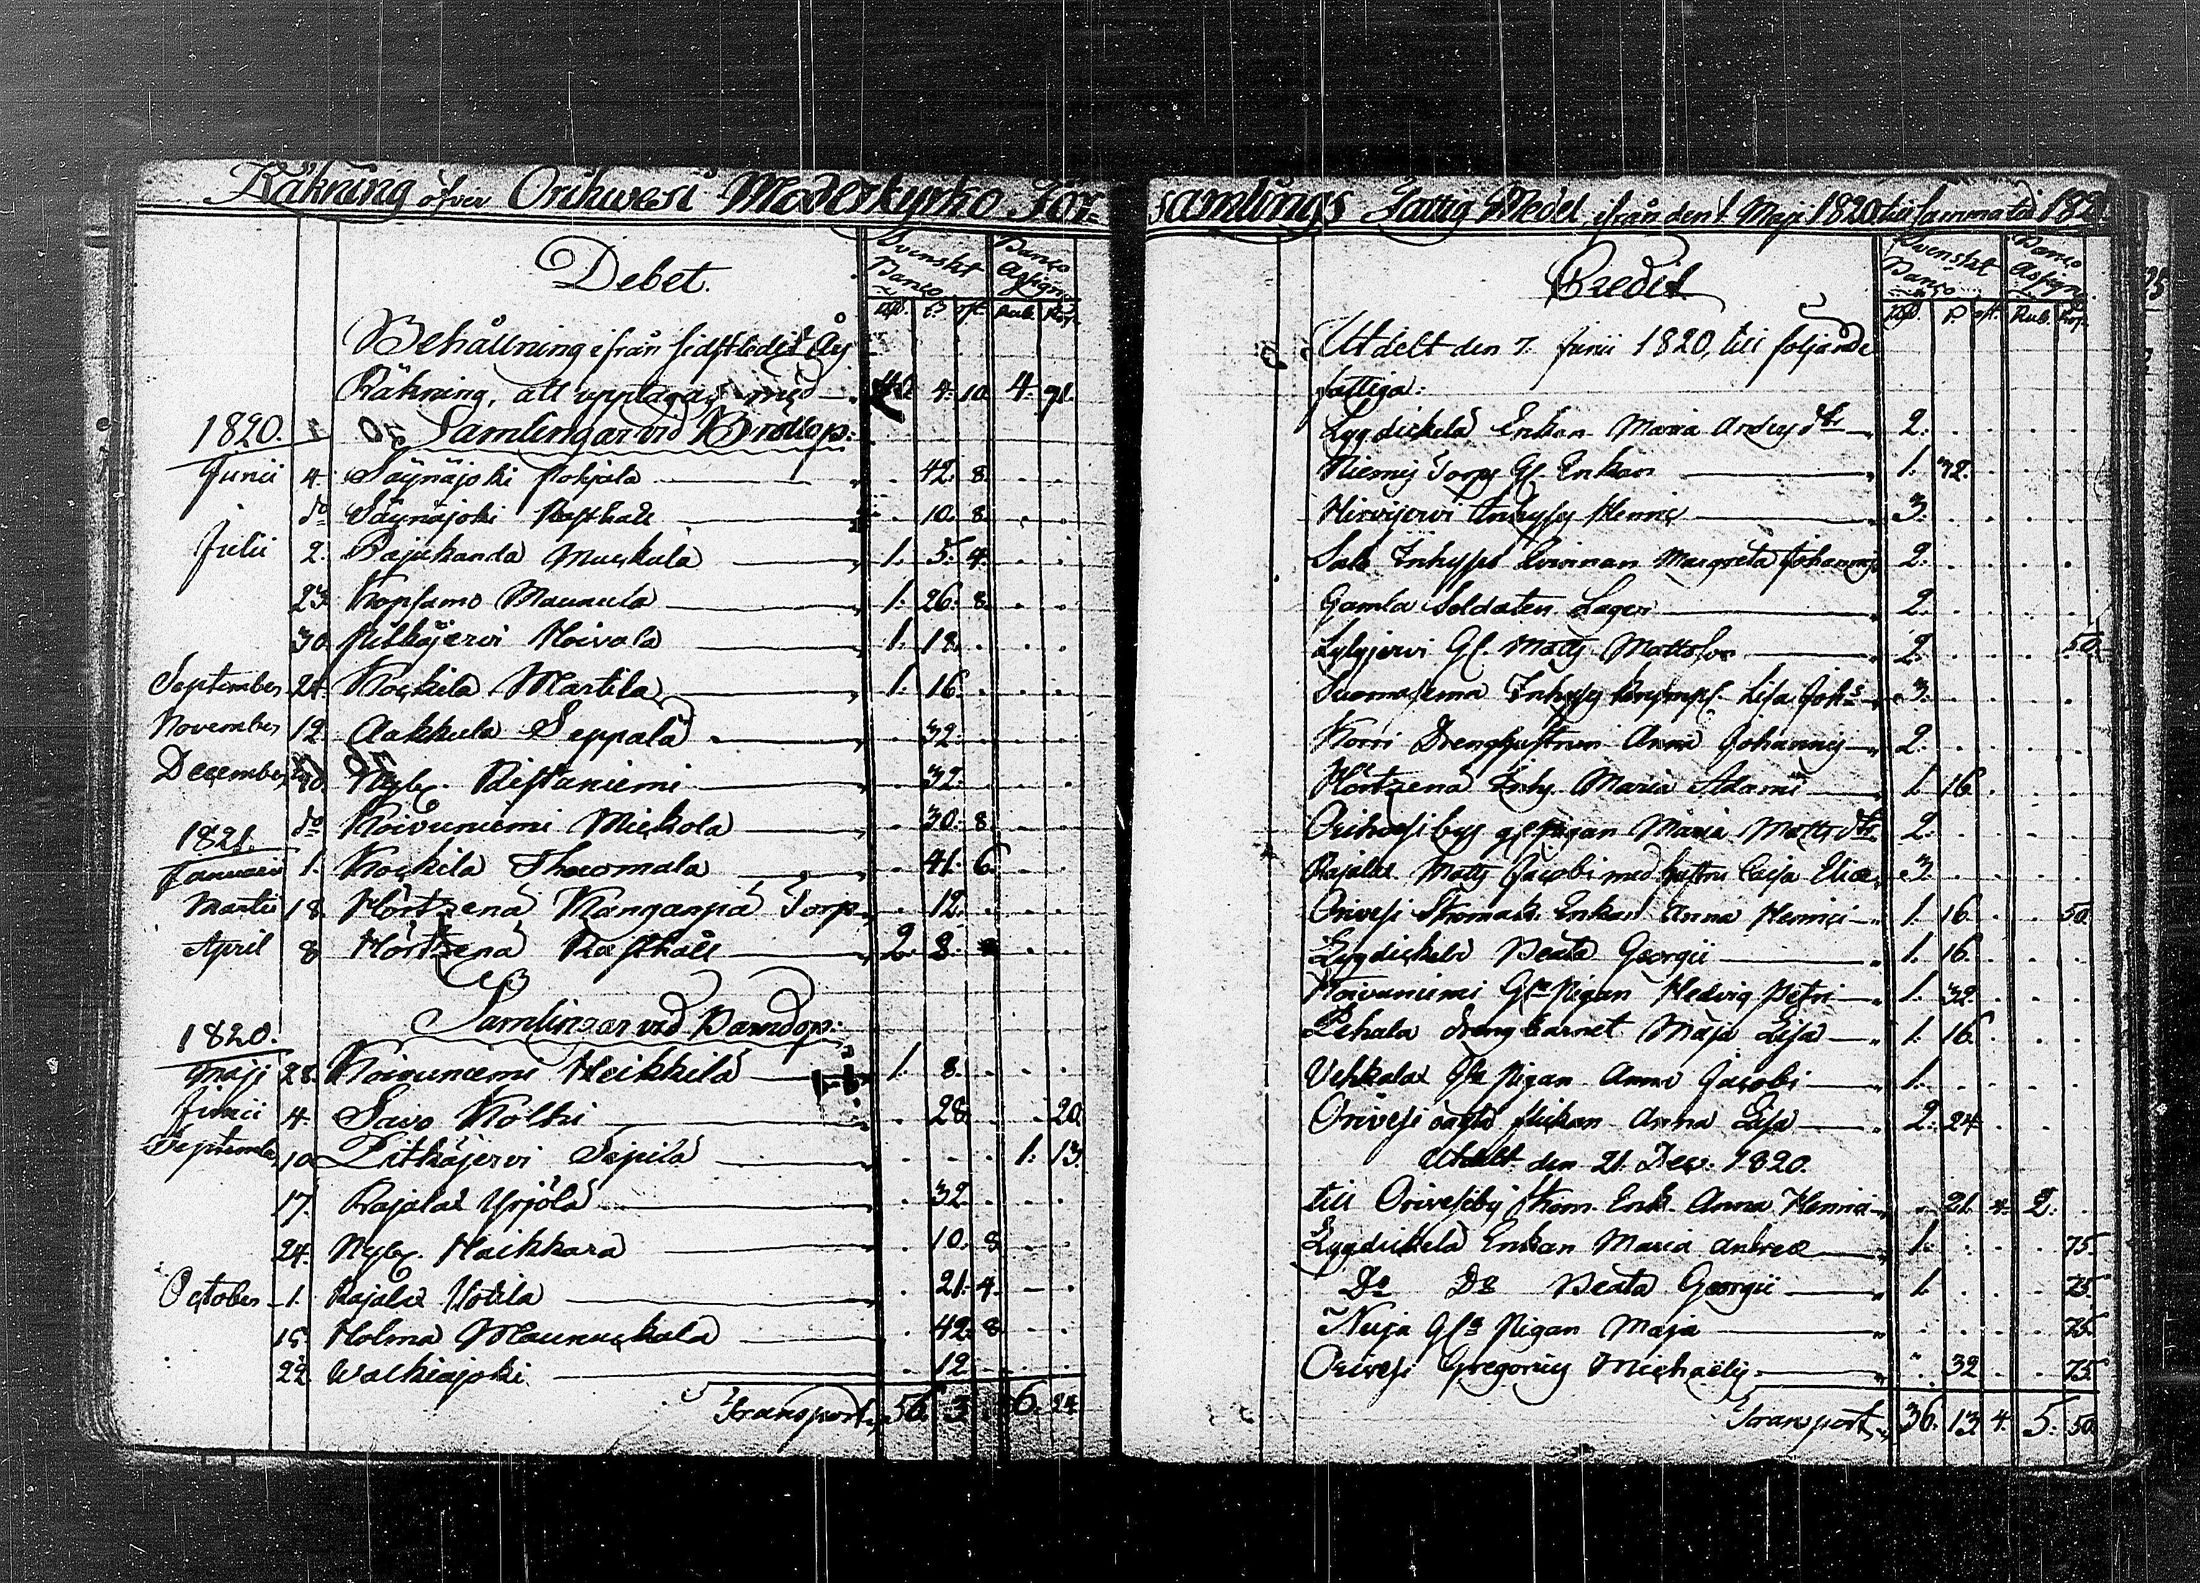 Räkning öfver Orihwesi Moderkyrko För-
Debet.
Svenskt Banco
Banco Assign.
Rd. ß. rst. Rub. Kop.
Behållning ifrån sidstledit Års
Räkning, att upptagas med 4. 10. 4. 91.
1820. Samlingar vid Bröllop:
Junii 4. Säynäjoki Pohjala . 42. 8. . .
do Säynäjoki Rasthåll . 10. 8. . .
Julii 2. Muckula 1. 5. 4. . .
23. Kopsamo Maunula 1. 26. 8. . .
30. Pitkäjervi Hoivala 1. 18. . . .
September 24. Kockila Martila 1. 16. . . .
November 12. Aakkula Seppälä . 32. . . .
December Nyby. Ristaniemi . 32. . . .
do Koivuniemi Mickola . 30. 8. . .
1821.
Januarii 1. Kockila Thuomala . 41. 6. . .
Martii 18. Hörtsenä Kangaspä Torp . 12. . . .
April 8. Hörtsenä Rasthåll 2. 8.
Samlingar vid Barndop:
1820.
Maji 28. Koivuniemi Heikkilä 1. 8. . . .
Junii 4. Savo Kolhi . 28. . . 20.
September 10. Pitkäjervi Sepilä . . . 1. 13.
17. Rajalax Yrjölä . 32. . . .
24. Nyby. Haikkara . 10. 8. . .
October 1. Rajalax Uotila . 21. 4. . .
15. Holma Maunuckala . 42. 8. . .
22. Walkiajoki . 12. . . .
Transport 56. 3. . 6. 24.
samlings Fattig Medel, ifrån den 1. Maji 1820 till samma tid 182
Credit
Svenskt Banco
Banco Assign.
Rd. ß. rst. Rub. Kop.
Utdelt den 7. Junii 1820, till följande
fattiga:
Lyydickelä Enkan Maria Anders dtr 2. . . . .
Niemis Torps Gl. Enkan 1. 32. . . .
Hirvijervi Inhyses Henric 3. . . . .
Sals Inhyses Qvinnan Margreta Johannis 2. . . . .
Gamla Soldaten Lager 2. . . . .
Lylyjervi Gl. Matts Mattsson 2. . . . 50.
Suomasema Inhyses Lisa Johs 3. . . . .
Korri Drenghustrun Anna Johannis 2. . . . .
Hörtsenä Inhy. Maria Adami 1. 16. . . .
Orihvesiby gl. pigan Maria Matts dtr 2. . . . .
Rajalax Matts Jacobi med hustru Caisa Eliæ 3. . . . .
Orivesi Thomak. Enkan Anna Henrici 1. 16. . . 50.
Lyydickelä Beata Georgii 1. 16. . . .
Koivuniemi Gla Pigan Hedvig Petri 1. 32. . . .
Pehula Drengbarnet Maja Lisa 1. 16. . . .
Vehkalax Gla Pigan Anna Jacobi 1. . . . .
Orivesi flickan Anna Lisa 2. 24. . . .
Utdelt den 21. Dec. 1820.
till Orivesiby Thom. Enk. Anna Henrici . 21. 4. 2. .
Lyydickelä Enkan Maria Andreæ 1. . . . 75.
Do Do Beata Georgii 1. . . . 75.
Neja Gla Pigan Maja . . . . 75.
Orivesi Gregorius Michaelis . 32. . . 75.
Transport 36. 13. 4. 5. 50.